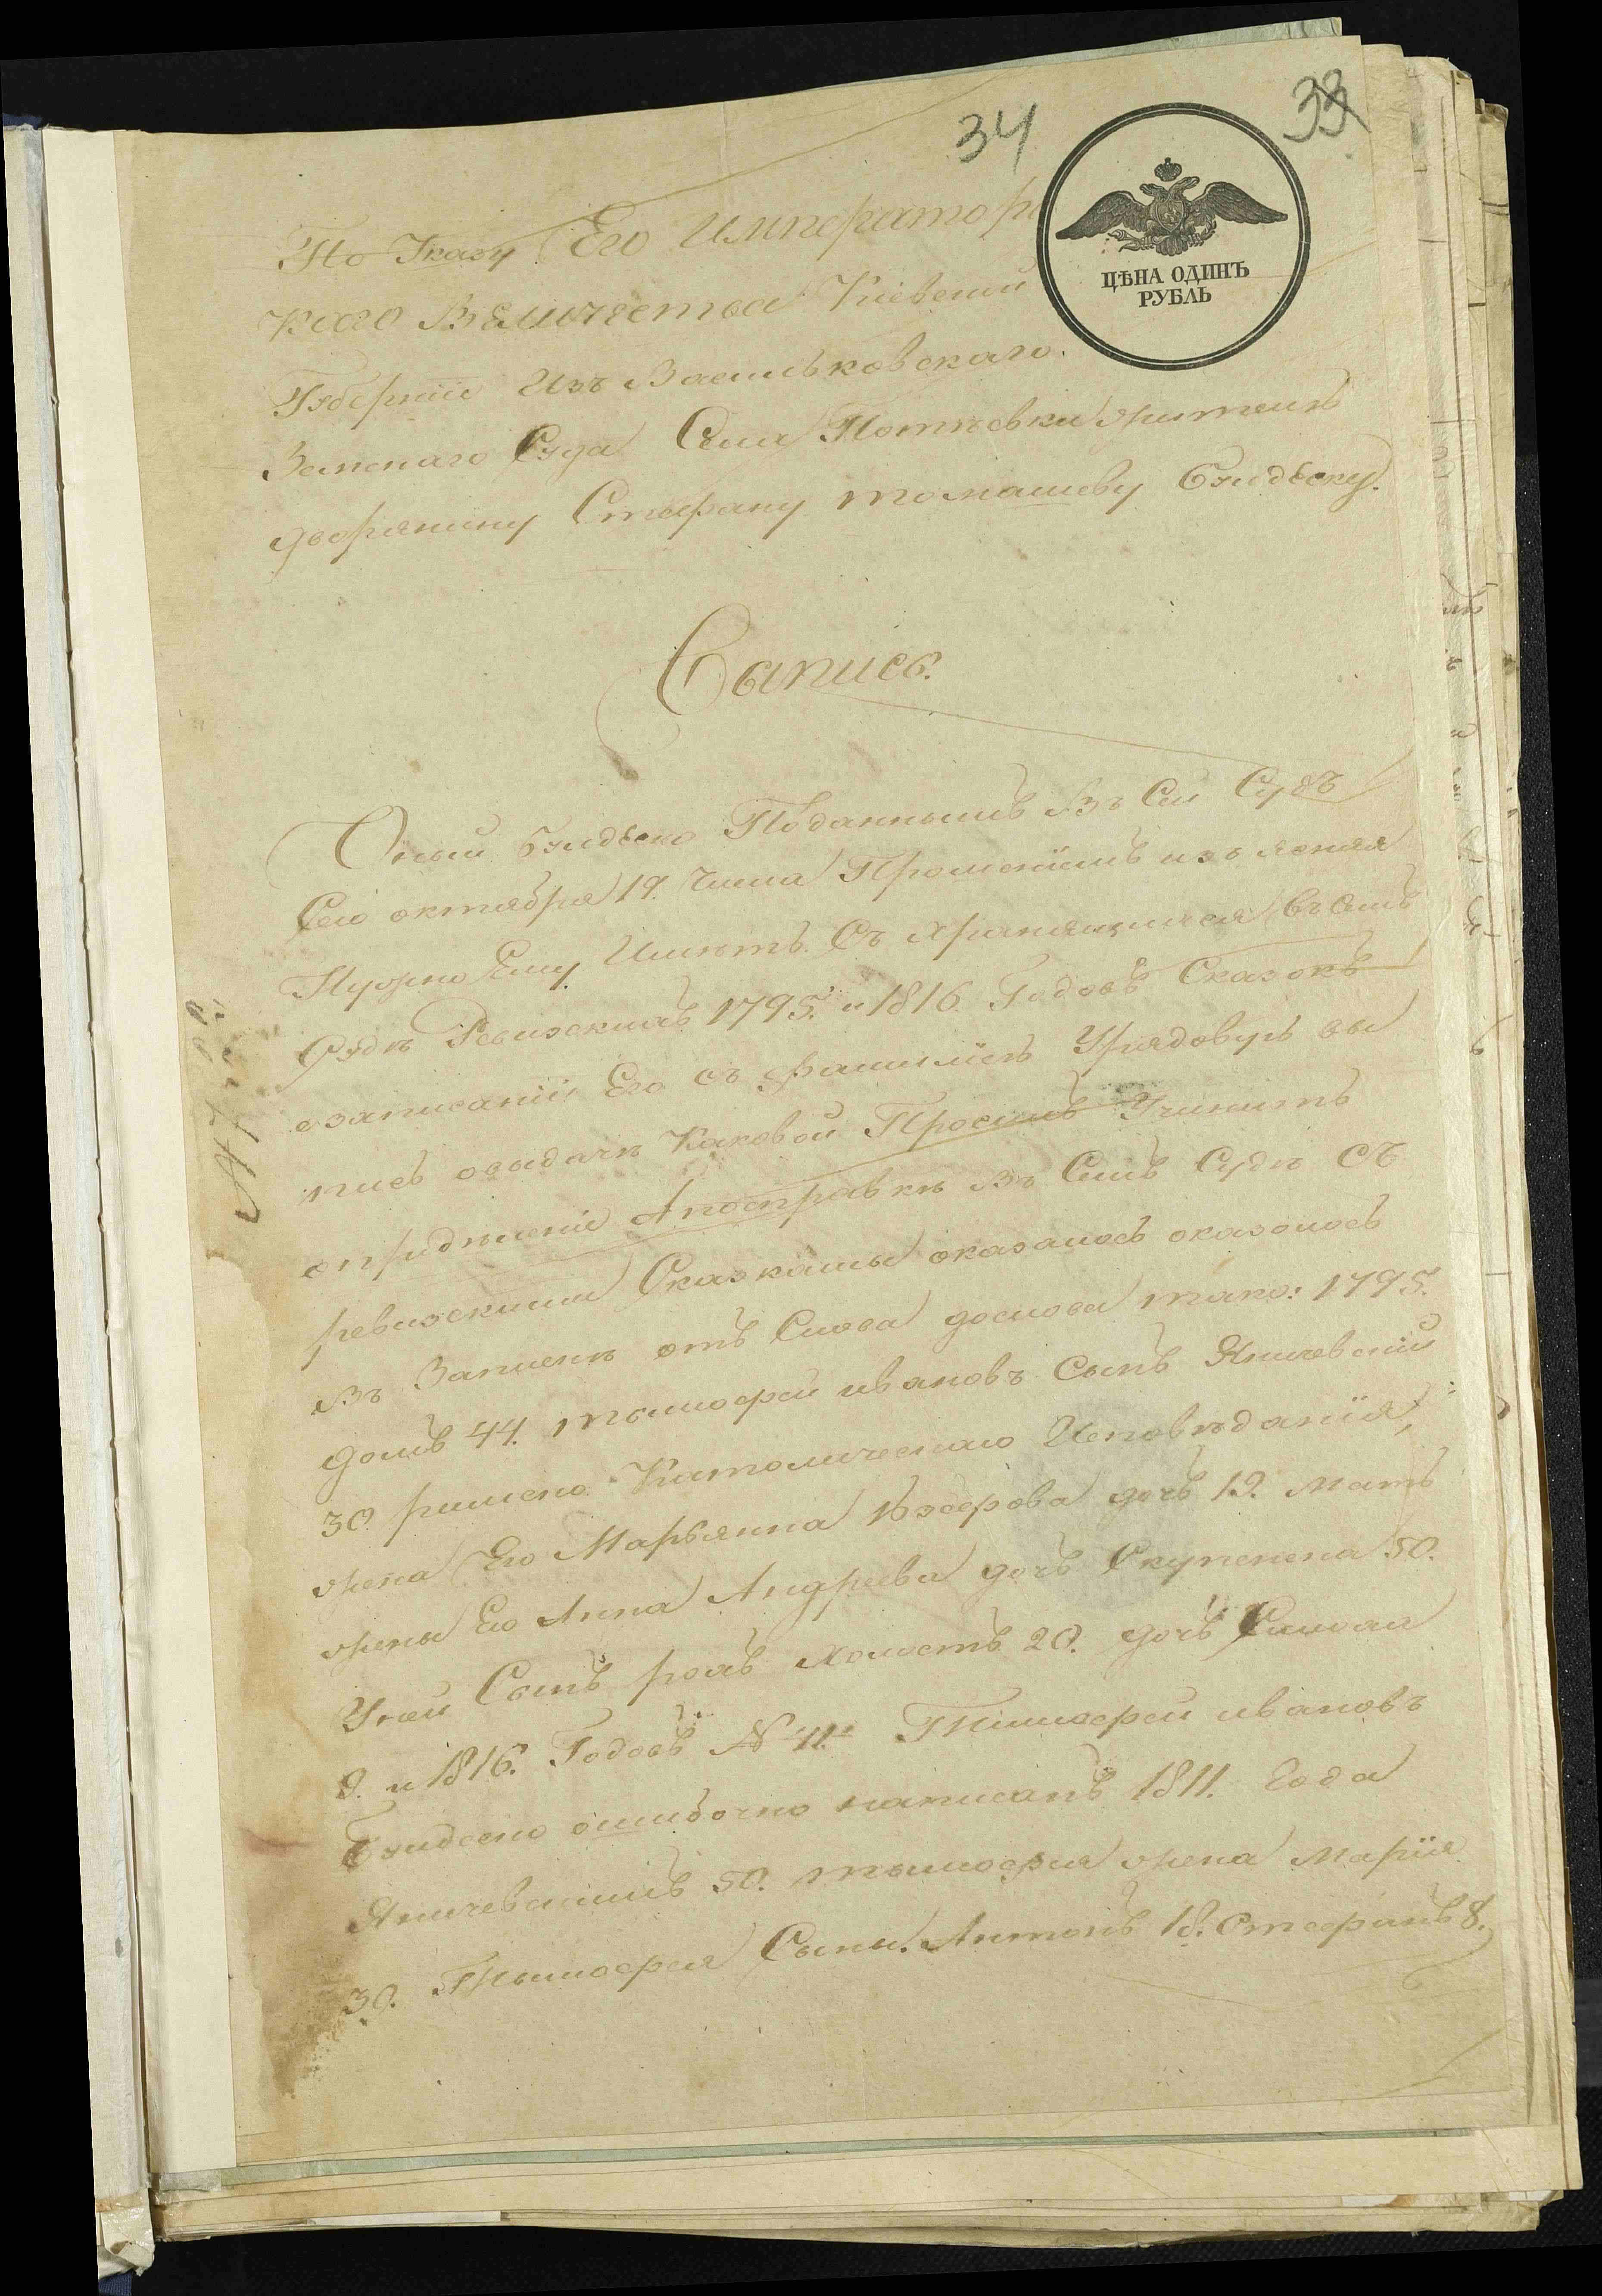 34
33
ЦѢНА ОДИНЪ
РУБЛЬ
По Указу Его Императорс
каго Величества Кіевской
Губерніи Изъ Васильковскаго
Земскаго Суда Села Потіевки жителю
дворянину Стефану томашеву
Выпись.
Оный Поданнымъ Въ Сей Судъ
Сего октября 19. Числа Прошеніемъ изъясняя
Нужно Ему Имѣть Съ хранящихся въ семъ
Судѣ Ревизскихъ 1795. и 1816. Годовъ Сказокъ
озаписаніи Его съ фамиліею Урядовую вы
пись овыдачѣ Каковой Просилъ Учинить
опредѣленіе Апосправкѣ Въ Семъ Судѣ Съ
ревизскими Сказками оказалось оказолось
Въ отъ Слова дослова тако: 1795.
домъ 44. тимофей ивановъ Сынъ Яничевский
30. римско Католическаго Исповѣданія,
жена Его Марьянна дочь 19. Мать
жены Его Анна Андреева дочь 50.
Унеи Сынъ холостъ 20. дочь
9. и 1816. Годовъ № 11. Тимофей ивановъ
ошибочно написанъ 1811. Года
Яничевскимъ 50. тимофея жена Марія
30. Тимофея Сыны. Антонъ 18. Стефанъ 8.